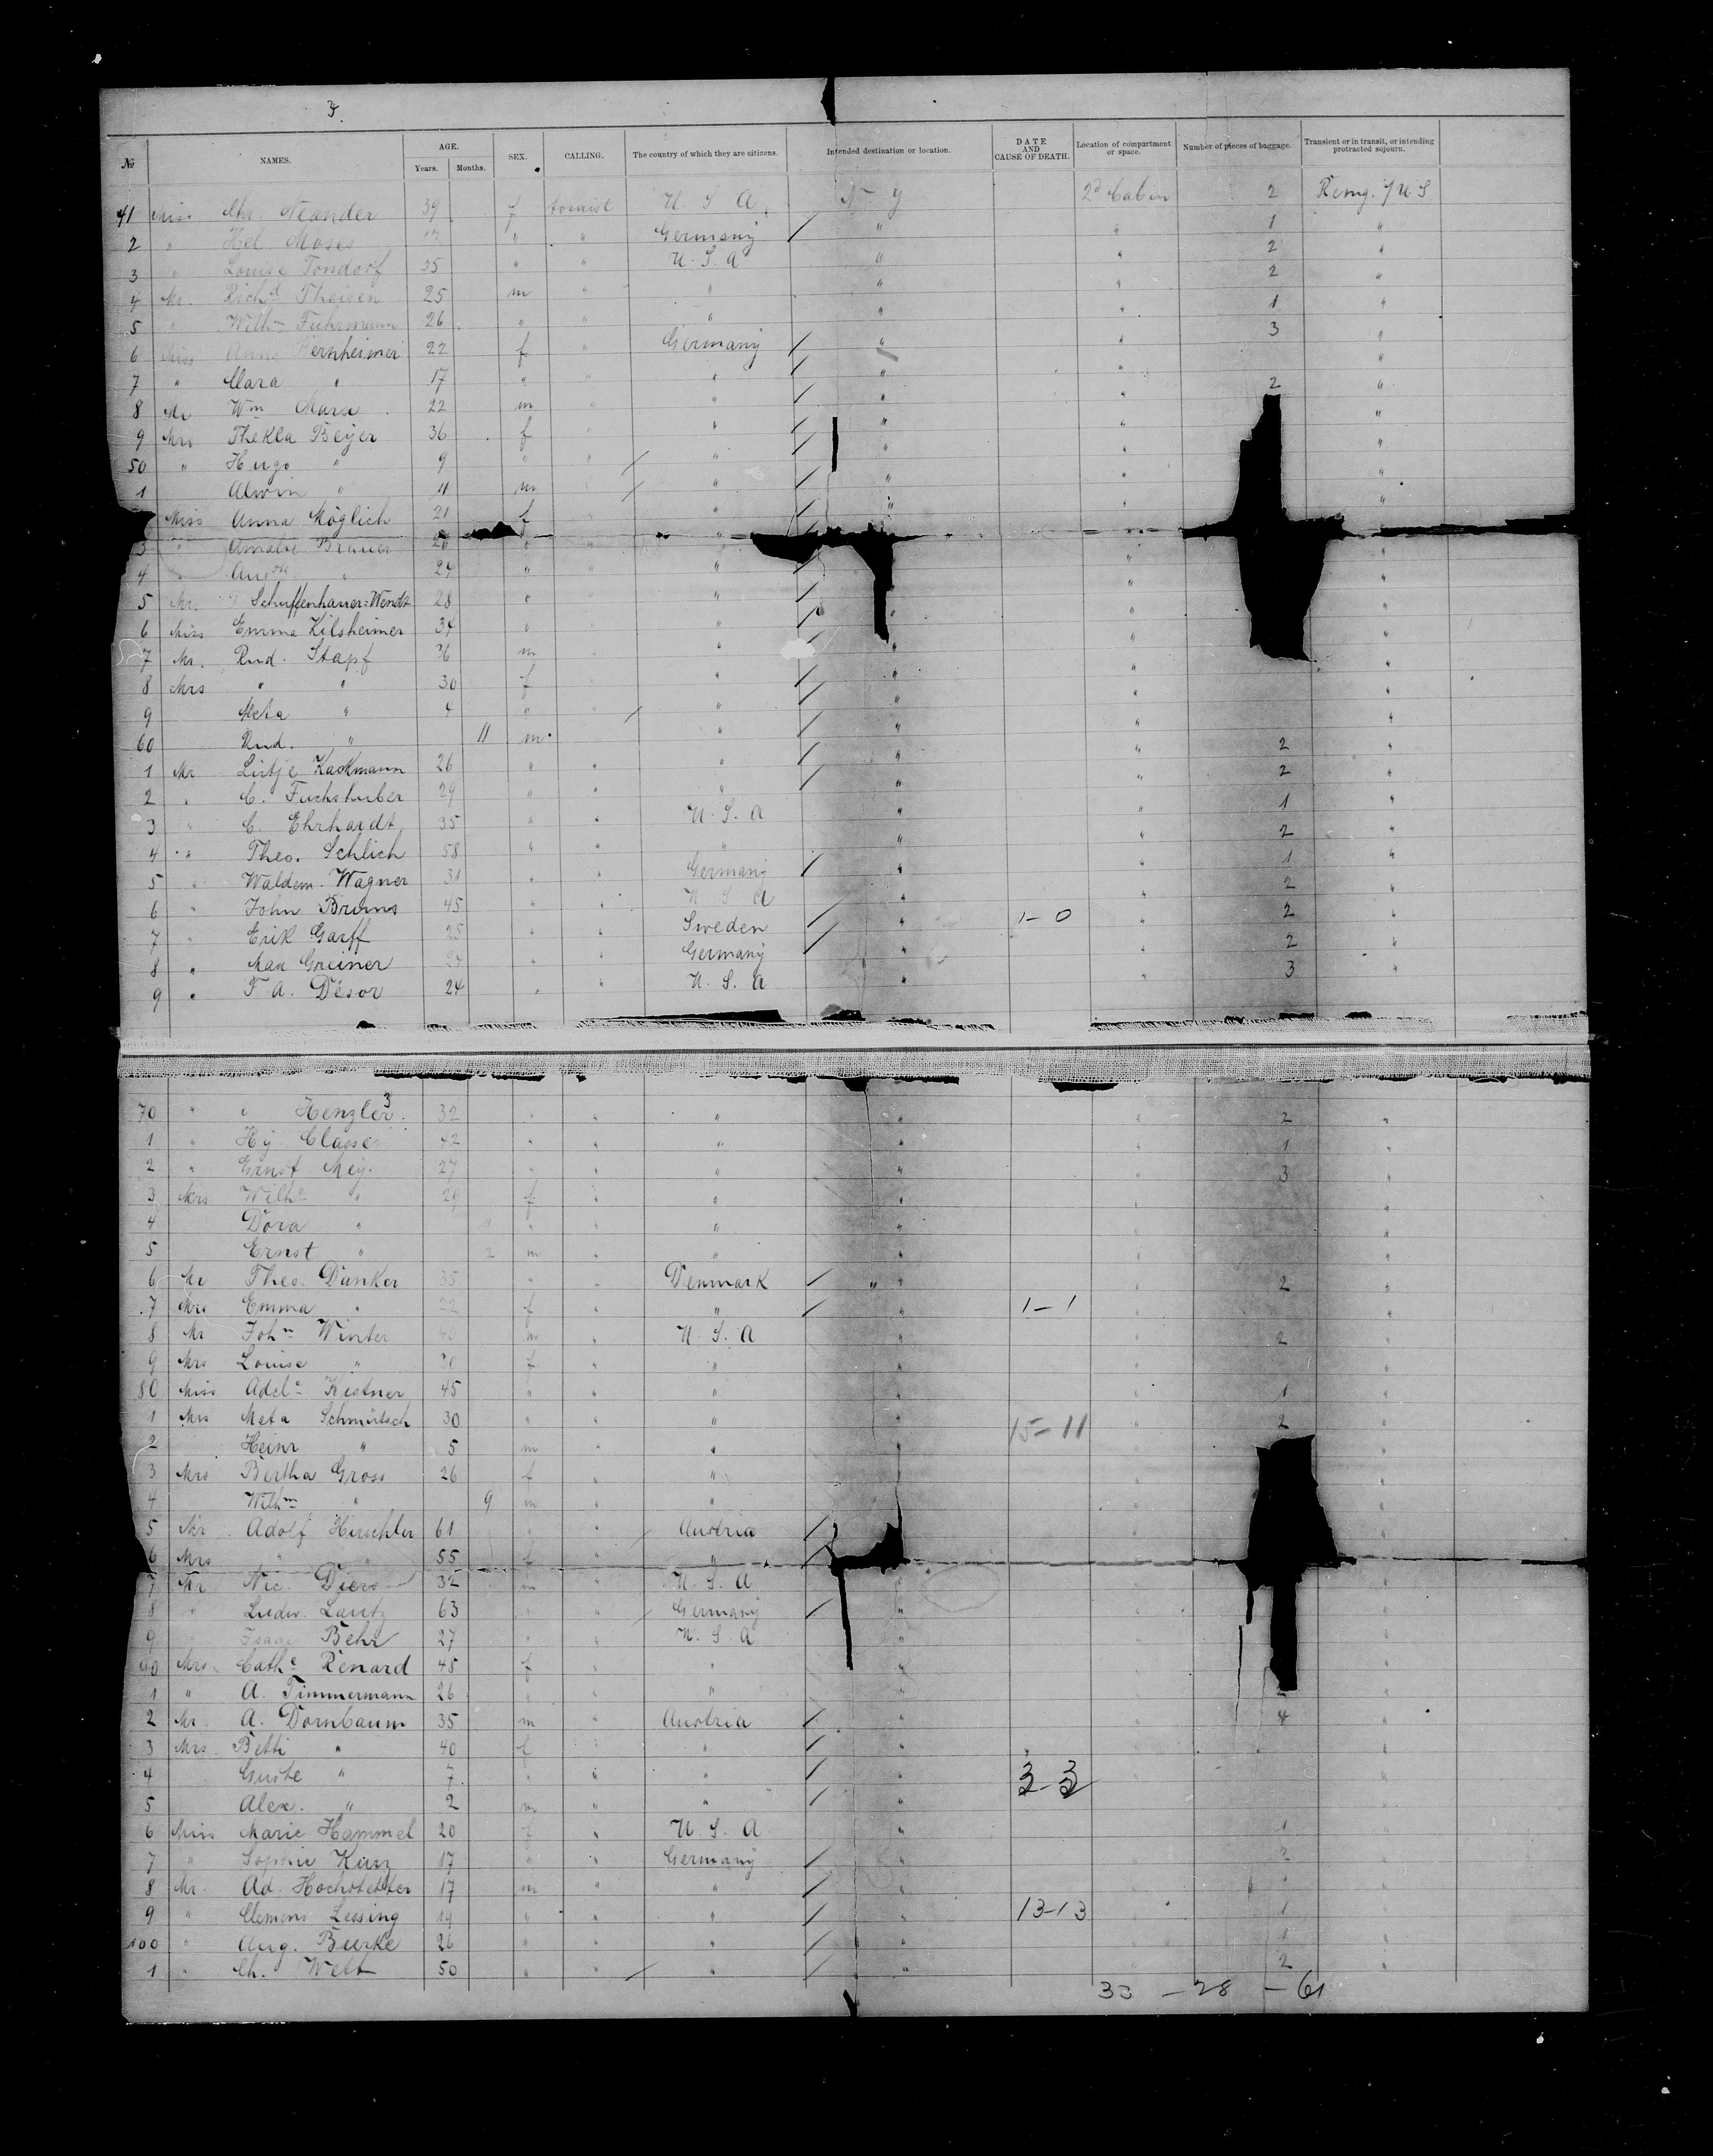 3.
№ NAMES. AGE. Years. Months. SEX. CALLING. The country of which they are citizens. Intended destination or location. DATE AND CAUSE OF DEATH. Location of compartment or space. Number of pieces of baggage. Transient or in transit, or intending protracted sojourn.
41 Miss Chr. Neander 39 f tourist U. S. A. N Y 2d Cabin 2 U S
2 " Hel. Moses " " Germany / " " 1 "
3 " Louise Tondorf 35 " " U. S. A " " 2 "
4 Mr. Richd Theisen 25 m " " " " 2 "
5 " Wilhm Fuhrmann 26 " " " " " 1 "
6 Miss Anna Bernheimer 22 f " Germany / " " 3 "
7 " Clara " 17 " " " / " " "
8 Mr Wm Marx 22 m " " / " " 2 "
9 Mrs Thekla Beyer 36 f " / " " "
50 " Hugo " 9 " " / " / " " "
1 Alwin " 11 m / " / " " "
Miss Anna Möglich 21 f " / " " "
3 " Amalie Brauer " " " "
4 " Auguste " 24 " " " / " "
5 Mrs. Schuffenhauer=Wendt 28 " " / " "
6 Miss Emma Kilsheimer 34 " " / " " "
7 Mr. Rud. Stapf 36 m " / " " "
8 Mrs " " 30 f " / " " "
9 Meta " 4 " / " / " " "
60 Rud. " 11 m " / " " "
1 Mr Lütje Kackmann 26 " " " / " " 2 "
2 " C. Fuchshuber 29 " " " / " " 2 "
3 " C. Ehrhardt 35 " " U. S. A " " 1 "
4 " Theo. Schlich 58 " " " " " 2 "
5 " Waldem. Wagner 31 " " Germany / " 1 "
6 " John Bruns 45 " " U S A " " 2 "
7 " Erik Garff 25 " " Sweden / " 1-0 " 2 "
8 " Max Greiner 24 " " Germany / " " 2 "
9 " F. A. Désor 24 " " U. S. A " " 3 "
70 " " Henzler. 3 32 " " " " " 2 "
1 " Hy Classe 42 " " " " " 1 "
2 " Ernst Mey. 27 " " " " " 3 "
3 Mrs Wilhe " 29 f " " " " "
4 Dora " " " " " " "
5 Ernst " 2 m " " " " "
6 Mr Theo. Dunker 35 " " Denmark / " " " 2 "
7 Mrs Emma " 22 f " " / " 1-1 " "
8 Mr John Winter 40 m " U. S. A " " 2 "
9 Mrs Louise " f " " " " "
80 Miss Adele Kistner 45 " " " " " 1 "
1 Mrs Meta Schmütsch 30 " " " " 15=11 " 2 "
2 Heinr " 5 m " " " " "
3 Mrs Bertha Gross 26 f " " " " "
4 Wilhm " 9 m " " " " "
5 Mr. Adolf Hirschler 61 " " / Austria / " "
6 Mrs " " 55 f " " / "
7 Mr Nic. Diers 32 m " U. S. A " " "
8 " Ludw. Lautz 63 " " / Germany / " " "
9 " Isaac Behr 27 " " U. S. A " " "
90 Mrs. Cathe Renard 45 f " " " " "
1 " A. Timmermann 26 " " " " " "
2 Mr. A. Dornbaum 35 m " Austria / " " 4 "
3 Mrs. Betti " 40 f " " / " " "
4 Guste " 7 " " " / " 3-3 " "
5 Alex. " 2 m " " / " " "
6 Miss Marie Hammel 20 f " U. S. A " " 1 "
7 " Sophie Kurz 17 " " Germany / " " 2 "
8 Mr. Ad. Hochstetter 17 m " " / " " " "
9 " Clemens Lessing 19 " " " / " 13-13 " 1 "
100 " Aug. Burke 26 " " " / " " 1 "
1 " Ch. Welt 50 " " / " / " " 2 "
33 - 28 - 61